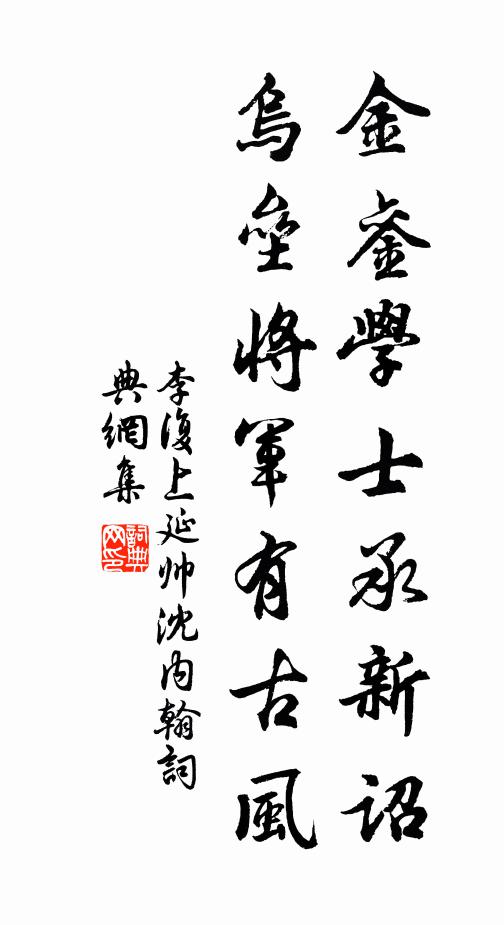 金鑾學士承新詔
烏壘將軍有古風
李復上延帅沈内翰詞
典網集
詞典
网印